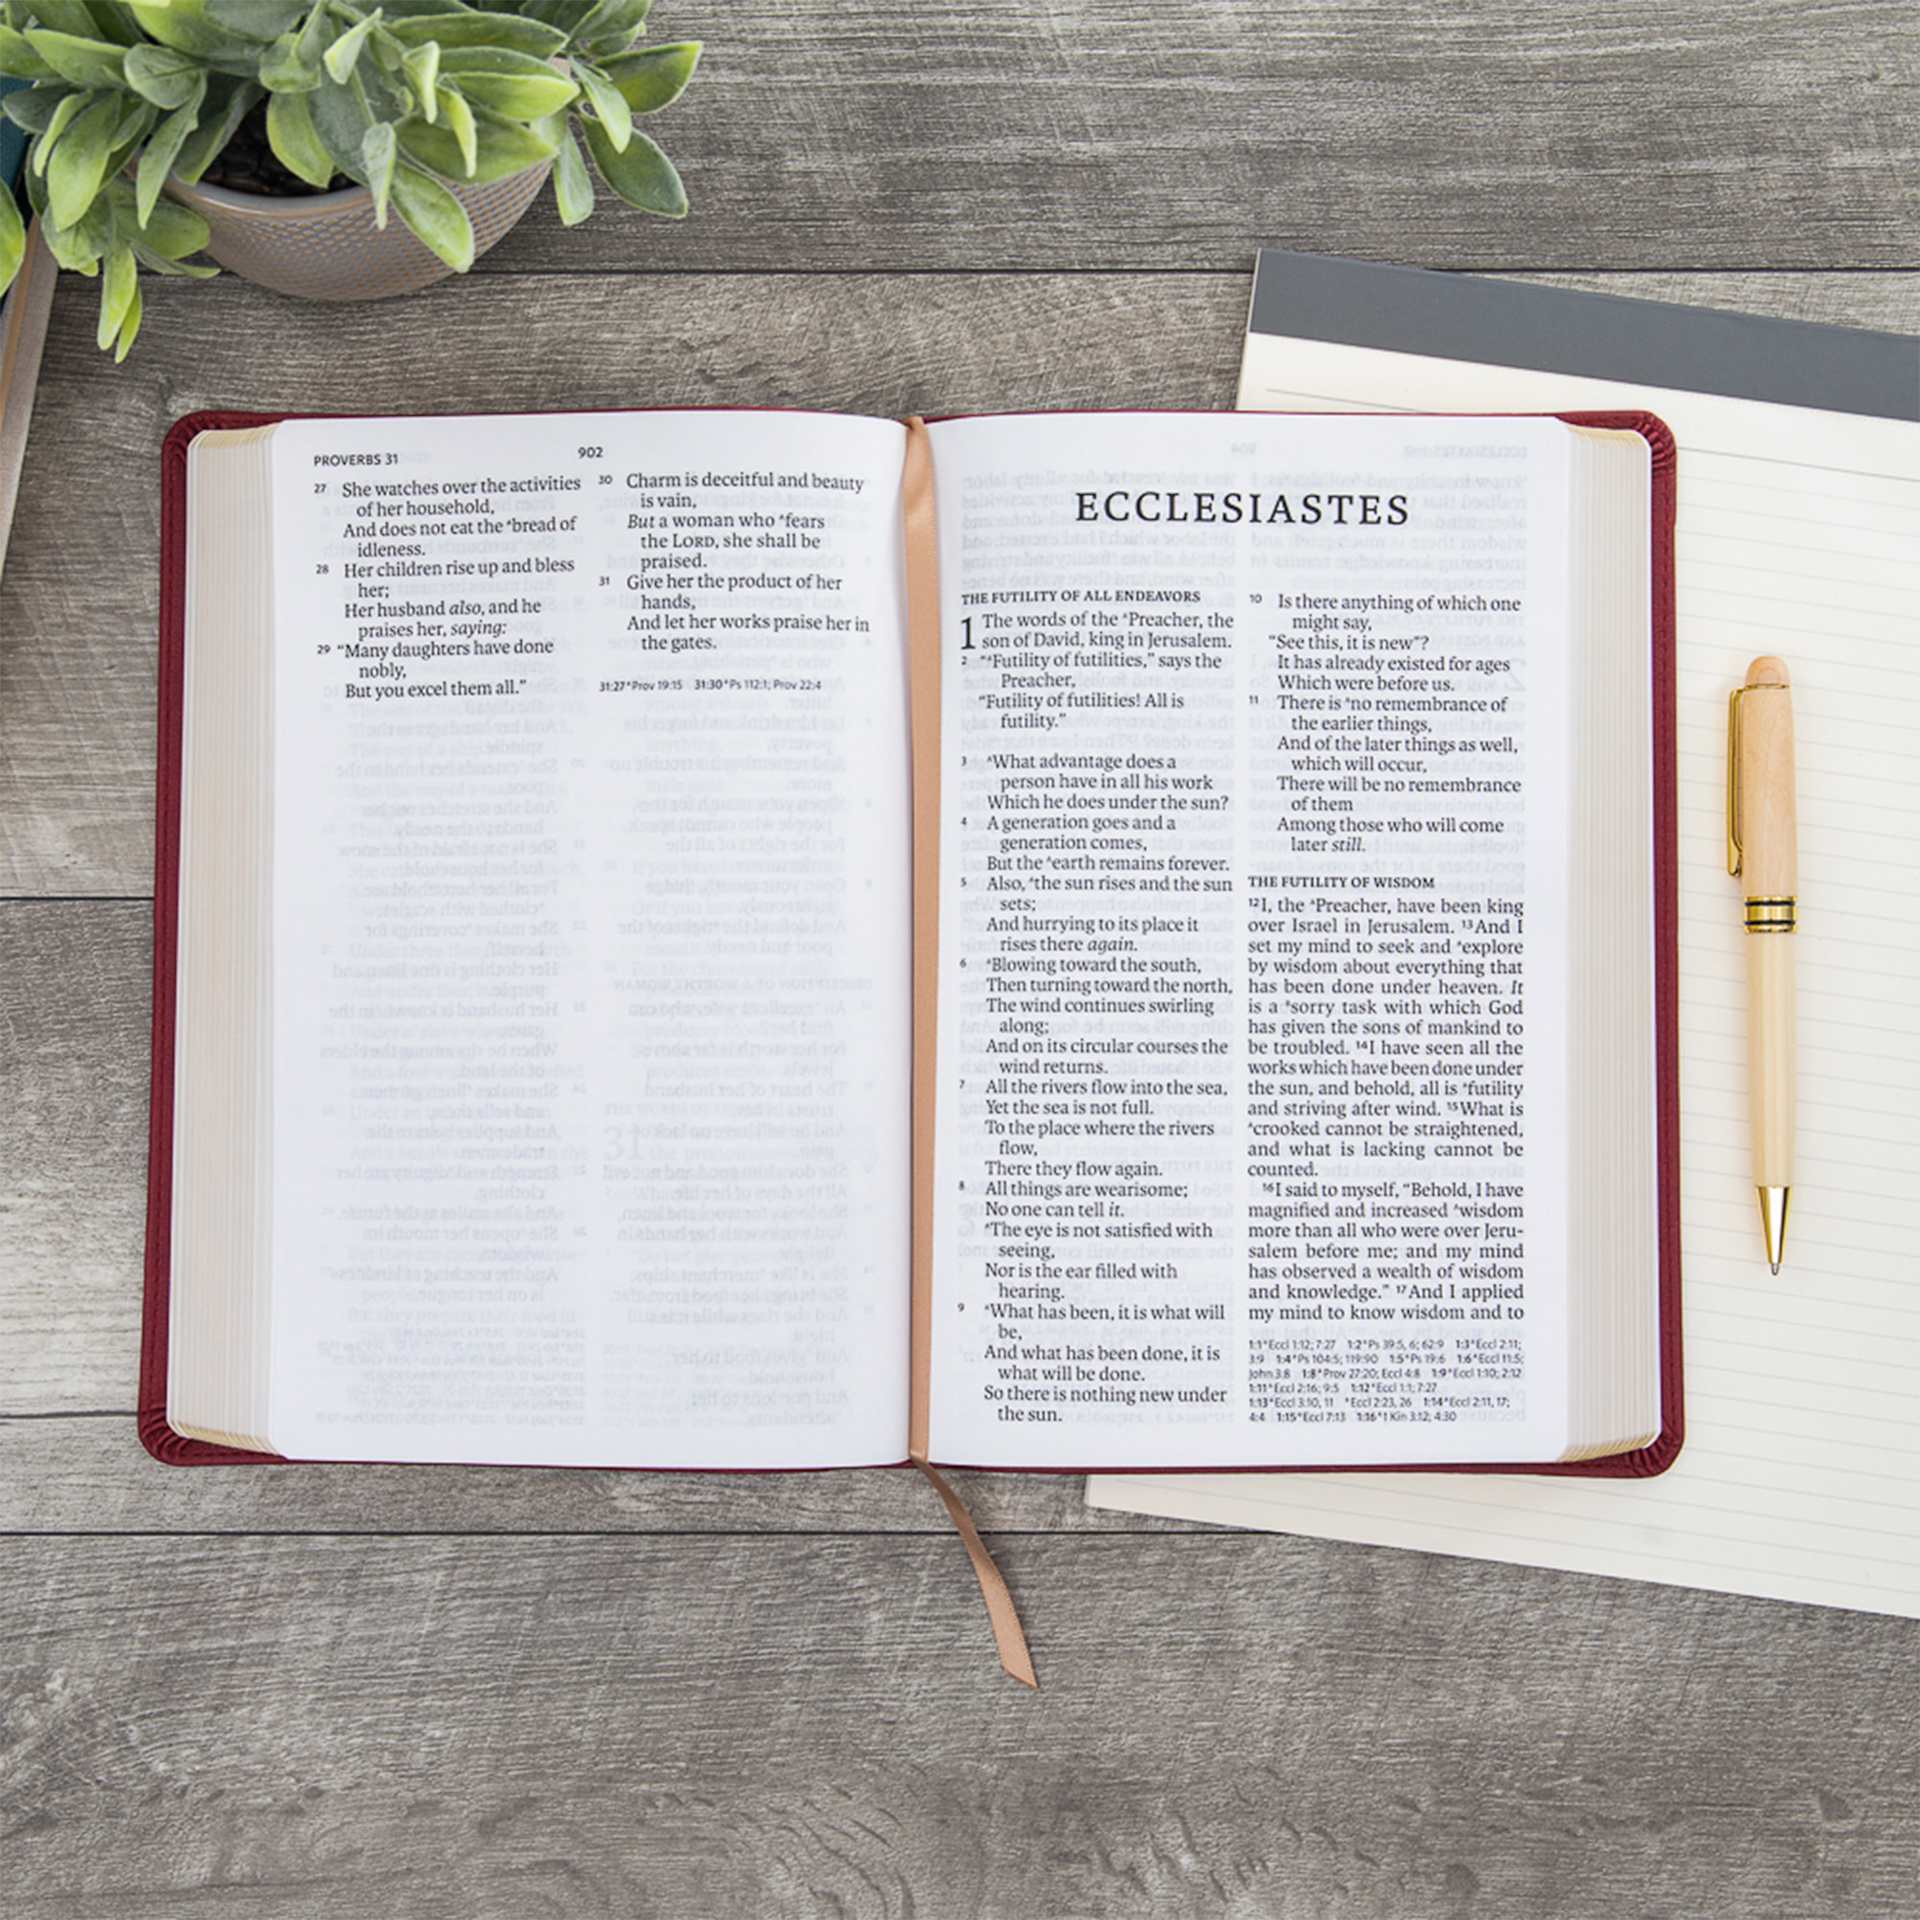 PROVERBS 31
902
27 She watches over the activities
of her household,
And does not eat the ᴬbread of
idleness.
28 Her children rise up and bless
her;
Her husband also, and he
praises her, saying:
29 “Many daughters have done
nobly,
But you excel them all.”
30 Charm is deceitful and beauty
is vain,
But a woman who ᴬfears
the LORD, she shall be
praised.
31 Give her the product of her
hands,
And let her works praise her in
the gates.
31:27 ᴬProv 19:15 31:30 ᴬPs 112:1; Prov 22:4
ECCLESIASTES
THE FUTILITY OF ALL ENDEAVORS
1 The words of the ᴬPreacher, the
son of David, king in Jerusalem.
2 “ᴬFutility of futilities,” says the
Preacher,
“Futility of futilities! All is
futility.”
3 ᴬWhat advantage does a
person have in all his work
Which he does under the sun?
4 A generation goes and a
generation comes,
But the ᴬearth remains forever.
5 Also, ᴬthe sun rises and the sun
sets;
And hurrying to its place it
rises there again.
6 ᴬBlowing toward the south,
Then turning toward the north,
The wind continues swirling
along;
And on its circular courses the
wind returns.
7 All the rivers flow into the sea,
Yet the sea is not full.
To the place where the rivers
flow,
There they flow again.
8 All things are wearisome;
No one can tell it.
ᴬThe eye is not satisfied with
seeing,
Nor is the ear filled with
hearing.
9 ᴬWhat has been, it is what will
be,
And what has been done, it is
what will be done.
So there is nothing new under
the sun.
10 Is there anything of which one
might say,
“See this, it is new”?
It has already existed for ages
Which were before us.
11 There is ᴬno remembrance of
the earlier things,
And of the later things as well,
which will occur,
There will be no remembrance
of them
Among those who will come
later still.
THE FUTILITY OF WISDOM
12 I, the ᴬPreacher, have been king
over Israel in Jerusalem. 13 And I
set my mind to seek and ᴬexplore
by wisdom about everything that
has been done under heaven. It
is a ᴮsorry task with which God
has given the sons of mankind to
be troubled. 14 I have seen all the
works which have been done under
the sun, and behold, all is ᴬfutility
and striving after wind. 15 What is
ᴬcrooked cannot be straightened,
and what is lacking cannot be
counted.
16 I said to myself, “Behold, I have
magnified and increased ᴬwisdom
more than all who were over Jeru-
salem before me; and my mind
has observed a wealth of wisdom
and knowledge.” 17 And I applied
my mind to know wisdom and to
1:1 ᴬEccl 1:12; 7:27 1:2 ᴬPs 39:5, 6; 62:9 1:3 ᴬEccl 2:11;
3:9 1:4 ᴬPs 104:5; 119:90 1:5 ᴬPs 19:6 1:6 ᴬEccl 11:5;
John 3:8 1:8 ᴬProv 27:20; Eccl 4:8 1:9 ᴬEccl 1:10; 2:12
1:11 ᴬEccl 2:16; 9:5 1:12 ᴬEccl 1:1; 7:27
1:13 ᴬEccl 3:10, 11 ᴮEccl 2:23, 26 1:14 ᴬEccl 2:11, 17;
4:4 1:15 ᴬEccl 7:13 1:16 ᴬ1 Kin 3:12; 4:30